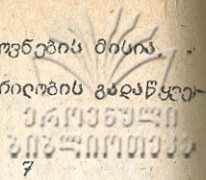 ოვნების მისია.
რილობის გადაწყვე-
ეროვნული
ბიბლიოთეკა
7